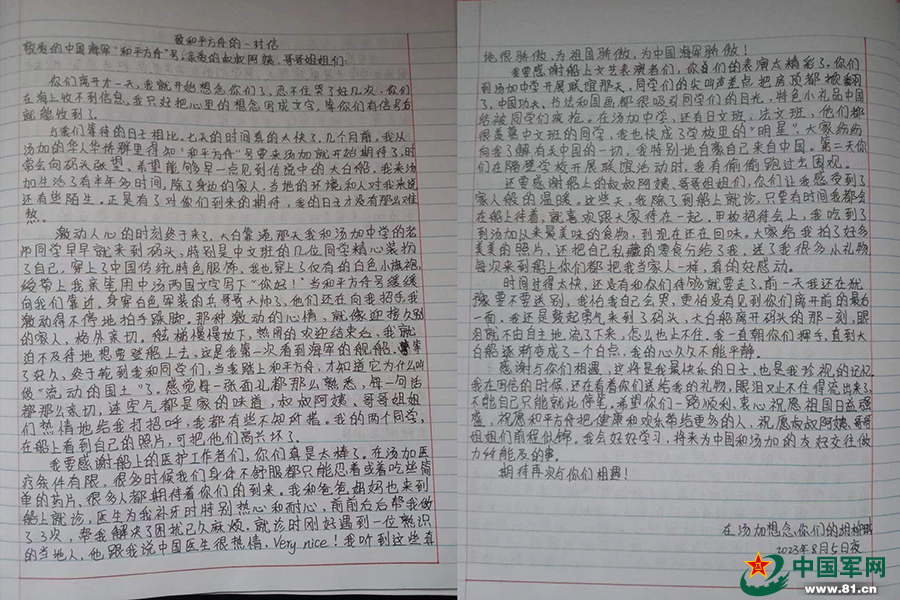 致和平方舟的一封信
敬爱的中国海军“和平方舟”号,亲爱的叔叔阿姨、哥哥姐姐们:
你们离开才一天,我就开始想念你们了,忍不住哭了好几次,你们
在海上收不到信息,我只好把心里的想念写成文字,等你们有信号后
就能收到了。
与我们等待的日子相比,七天的时间真的太快了。几个月前,我从
汤加的华人华侨群里得知“和平方舟”号要来汤加就开始期待了,时
常会向码头张望,希望能够早一点见到传说中的大白船。我来汤
加生活了有半年多时间,除了身边的家人,当地的环境和人对我来说
还有些陌生。正是有了对你们到来的期待,我的日子才没有那么难
熬。
激动人心的时刻终于来了,大白靠港那天我和汤加中学的老
师同学早早就来到码头,特别是中文班的几位同学精心装扮
了自己,穿上了中国传统特色服饰,我也穿上了仅有的白色小旗袍,
绶带上我亲笔用中汤两国文字写下“你好!”当和平方舟号缓缓
向我们靠近,身穿白色军装的兵哥哥太帅了,他们还在向我招手我
激动得不停地拍手跺脚。那种激动的心情,就像迎接久别
的家人,格外亲切。舷梯慢慢放下,热闹的欢迎结束后,我就
迫不及待地想要登船上去,这是我第一次看到海军的舰船。等
了好久,终于轮到我和同学们,当我踏上和平方舟,才知道它为什么叫
做“流动的国土”了。感觉每一张面孔都那么熟悉,每一句话
都那么亲切,连空气都是家的味道,叔叔阿姨、哥哥姐姐
们热情地给我打招呼,我都有些不知所措。我的两个同学,
在船上看到自己的照片,可把他们高兴坏了。
我要感谢船上的医护工作者们,你们真是太棒了。在汤加医
疗条件有限,很多时候我们身体不舒服都只能忍着或着吃些简
单的药片,很多人都期待着你们的到来。我和爸爸妈妈也来到
船上就诊,医生为我补牙时特别热心和耐心,前前后后帮我做
了3次,帮我解决了困扰已久麻烦。就诊时刚好遇到一位熟识
的当地人,他跟我说中国医生很热情,Very nice!我听到这些真
地很骄傲,为祖国骄傲、为中国海军骄傲!
我要感谢船上文艺表演者们,你们的表演太精彩了。你们
到汤加中学开展联谊那天,同学们的尖叫声差点把房顶都掀翻
了,中国功夫、书法和国画都很吸引同学们的目光,特色小礼品中国
结被同学们疯抢。在汤加中学,还有日文班,法文班,他们都
很羡慕中文班的同学,我也快成了学校里的“明星”,大家纷纷
向我了解有关中国的一切,我特别地自豪我来自中国。第二天你
们在隔壁学校开展联谊活动时,我有偷偷跑过去围观。
还要感谢船上的叔叔阿姨、哥哥姐姐们,你们让我感受到了
家人般的温暖。这些天,我除了到船上就诊,只要有时间我都会
在船上待着,就喜欢跟大家待在一起。甲板招待会上,我吃到了
到汤加以来最美味的食物,到现在还在回味。大家给我拍了好多
美美的照片,还把自己私藏的零食分给了我,送了我很多小礼物,
每次来到船上你们都把我当家人一样,真的好感动。
时间过得太快,还没有和你们待够就要走了。前一天我还在犹
豫要不要送别,我怕我自己会哭,更怕没有见到你们离开前的最后
一面。我还是鼓起勇气来到了码头,大白船离开码头的那一刻,眼
泪就不由自主地流了下来,怎么也止不住。我一直朝你们挥手,直到大
白船逐渐变成了一个白点,我的心久久不能平静。
感谢与你们相遇,这将是我最快乐的日子,也是我珍视的记忆。
我在写信的时候,还在看着你们送给我的礼物,眼泪又止不住得流出来了,
不能自己只能就此停笔。希望你们一路顺利,衷心祝愿祖国日益强
盛,祝愿和平方舟把健康和欢乐带给更多的人,祝愿叔叔阿姨、哥哥
姐姐们前程似锦。我会好好学习,将来为中国和汤加的友好交往做
力所能及的事。
期待再次与你们相遇!
在汤加想念你们的胡
2023年8月5日夜
中国军网
www.81.cn